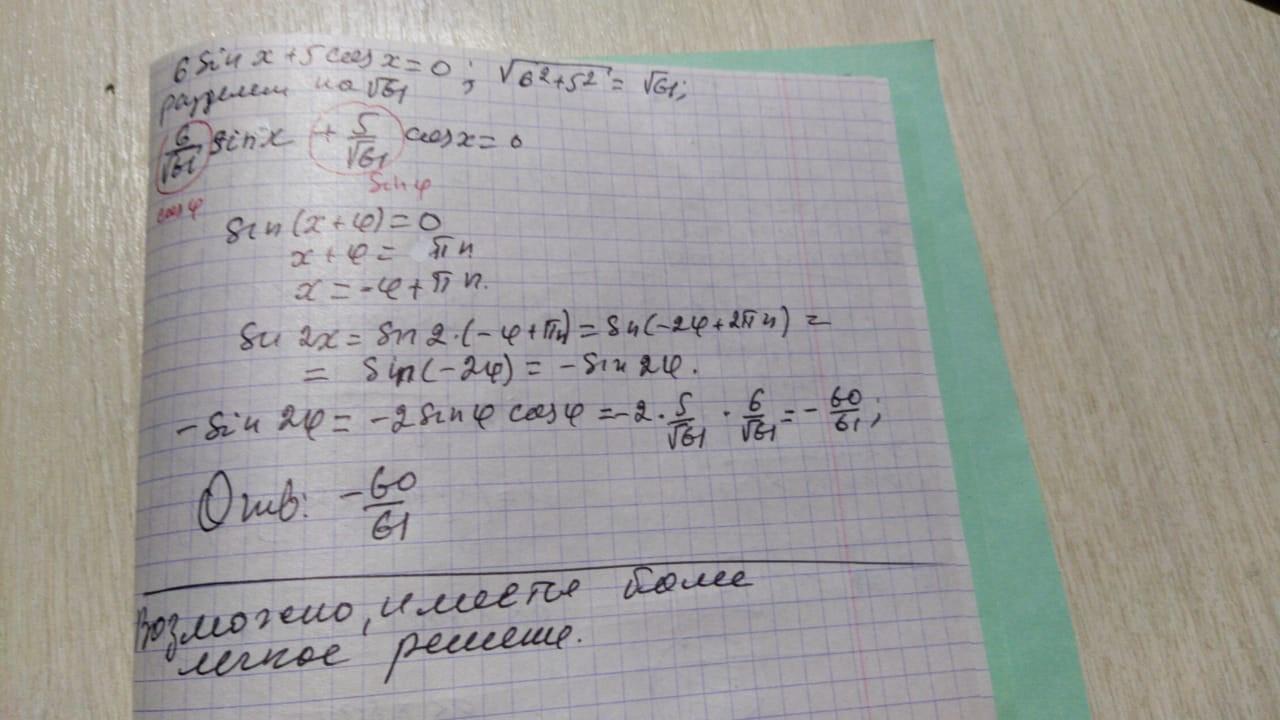 6 sin x + 5 cos x = 0 ; √6²+5² = √61;
разделим на √61
6/√61 sin x + 5/√61 cos x = 0
cos φ sin φ
sin (x + φ) = 0
x + φ = πn
x = -φ + πn.
sin 2x = sin 2·(-φ + πn) = sin(-2φ + 2πn) =
= sin(-2φ) = -sin 2φ.
-sin 2φ = -2 sin φ cos φ = -2 · 5/√61 · 6/√61 = - 60/61 ;
Отв: -60/61
Возможно, имеется более
легкое решение.